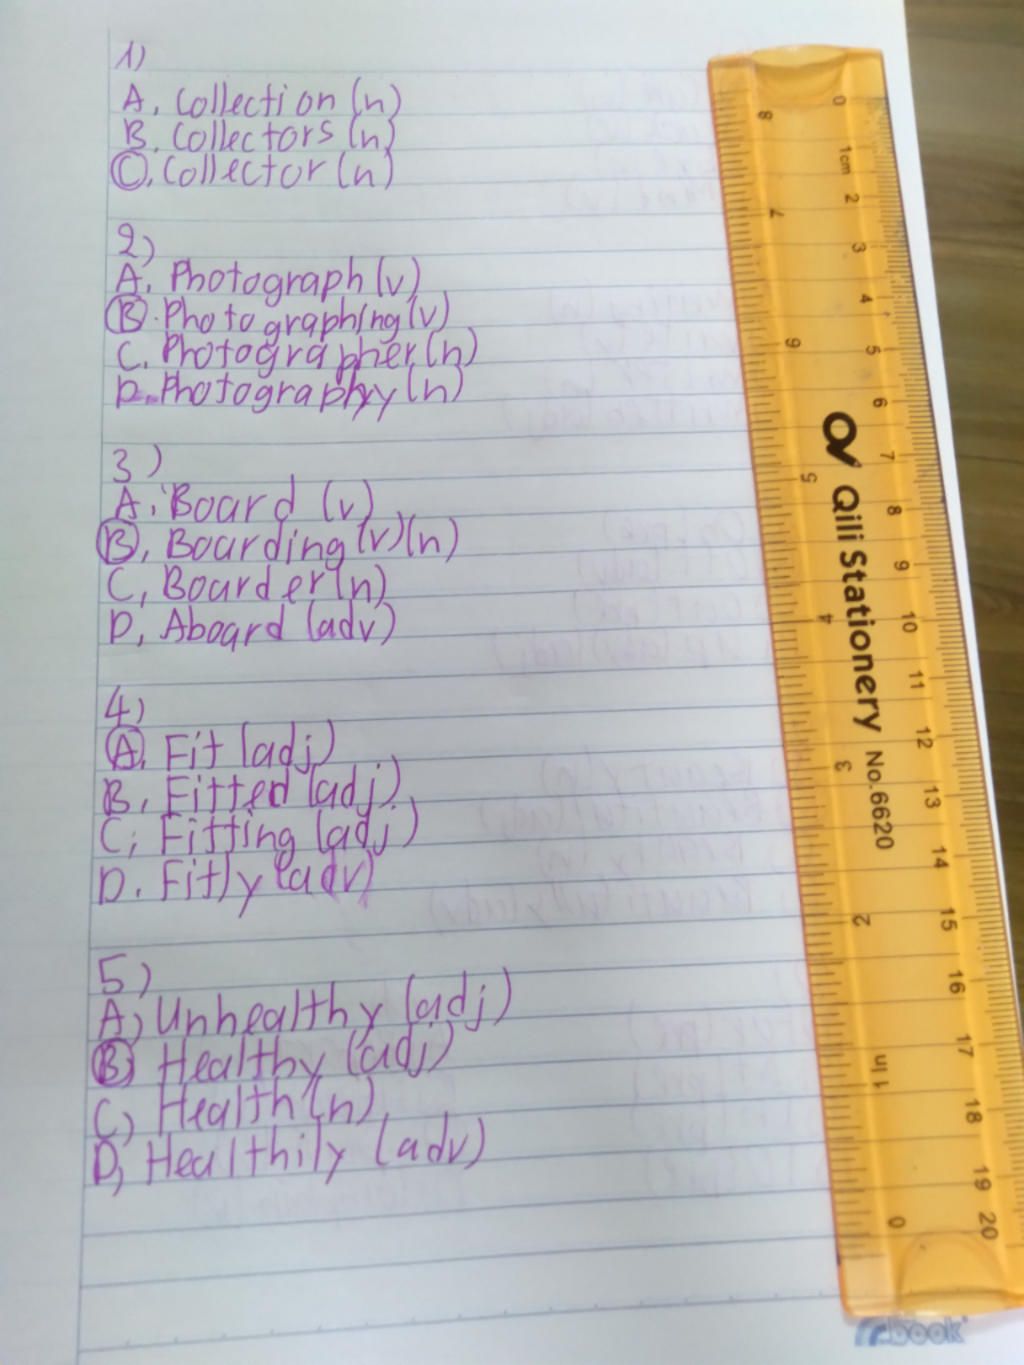 1)
A. Collection (n)
B. Collectors (n)
C. Collector (n)
2)
A. Photograph (v)
B. Photographing (v)
C. Photographer (n)
D. Photography (n)
3)
A. Board (v)
B, Boarding (v)(n)
C, Boarder (n)
D, Aboard (adv)
4)
A. Fit (adj)
B, Fitted (adj)
C, Fitting (adj)
D. Fitly (adv)
5)
A) Unhealthy (adj)
B) Healthy (adj)
C) Health (n)
D) Healthily (adv)
Qili Stationery No.6620
0 1cm 2 3 4 5 6 7 8 9 10 11 12 13 14 15 16 17 18 19 20
8 7 6 5 4 3 2 1in 0
book